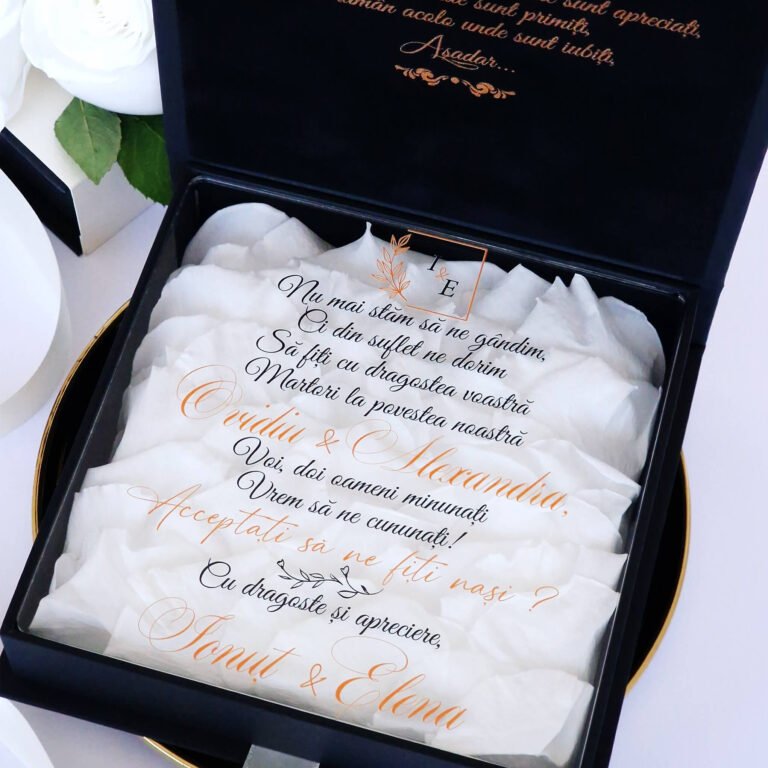 sunt apreciați,
sunt primiți,
acolo unde sunt iubiți,
Așadar...
I & E
Nu mai stăm să ne gândim,
Ci din suflet ne dorim
Să fiți cu dragostea voastră
Martori la povestea noastră
Ovidiu & Alexandra,
Voi, doi oameni minunați
Vrem să ne cununați!
Acceptați să ne fiți nași ?
Cu dragoste și apreciere,
Ionuț & Elena